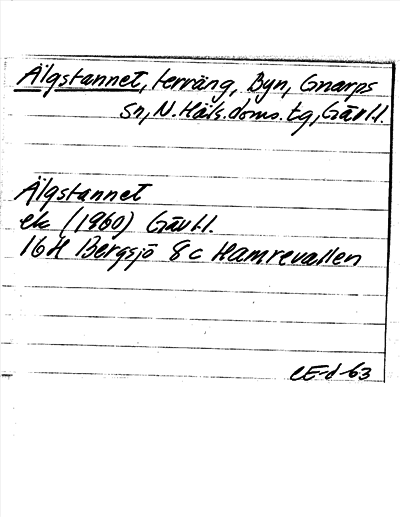 Älgstannet, terräng, Byn, Gnarps
sn, N. Häls. doms. tg, Gävl.l.
Älgstannet
ek (1960) Gävl.l.
16H Bergsjö 8c Hamrevallen
CE-d-63